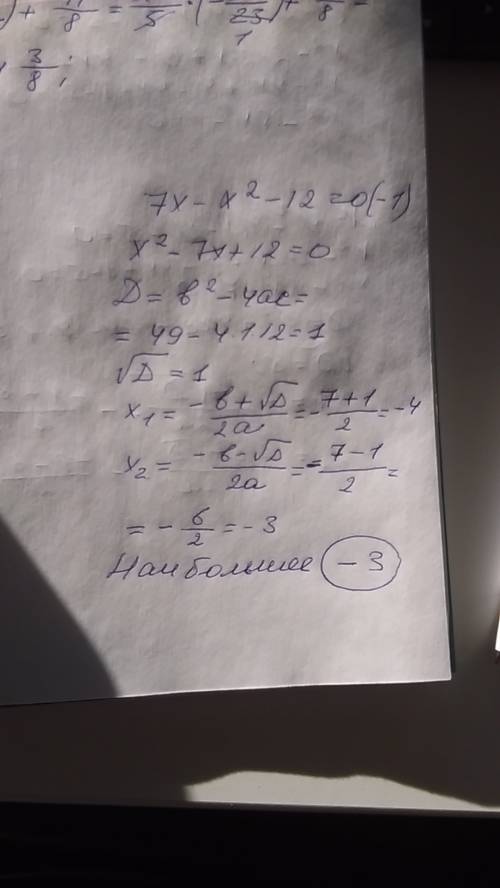 ) + 11/8 = /5 · (- /23) + /8 =
3/8 ;
7x - x² - 12 = 0 (-1)
x² - 7x + 12 = 0
D = b² - 4ac =
= 49 - 4·1·12 = 1
√D = 1
x₁ = (-b + √D)/2a = - (7 + 1)/2 = -4
x₂ = (-b - √D)/2a = - (7 - 1)/2 =
= - 6/2 = -3
Наибольшее -3